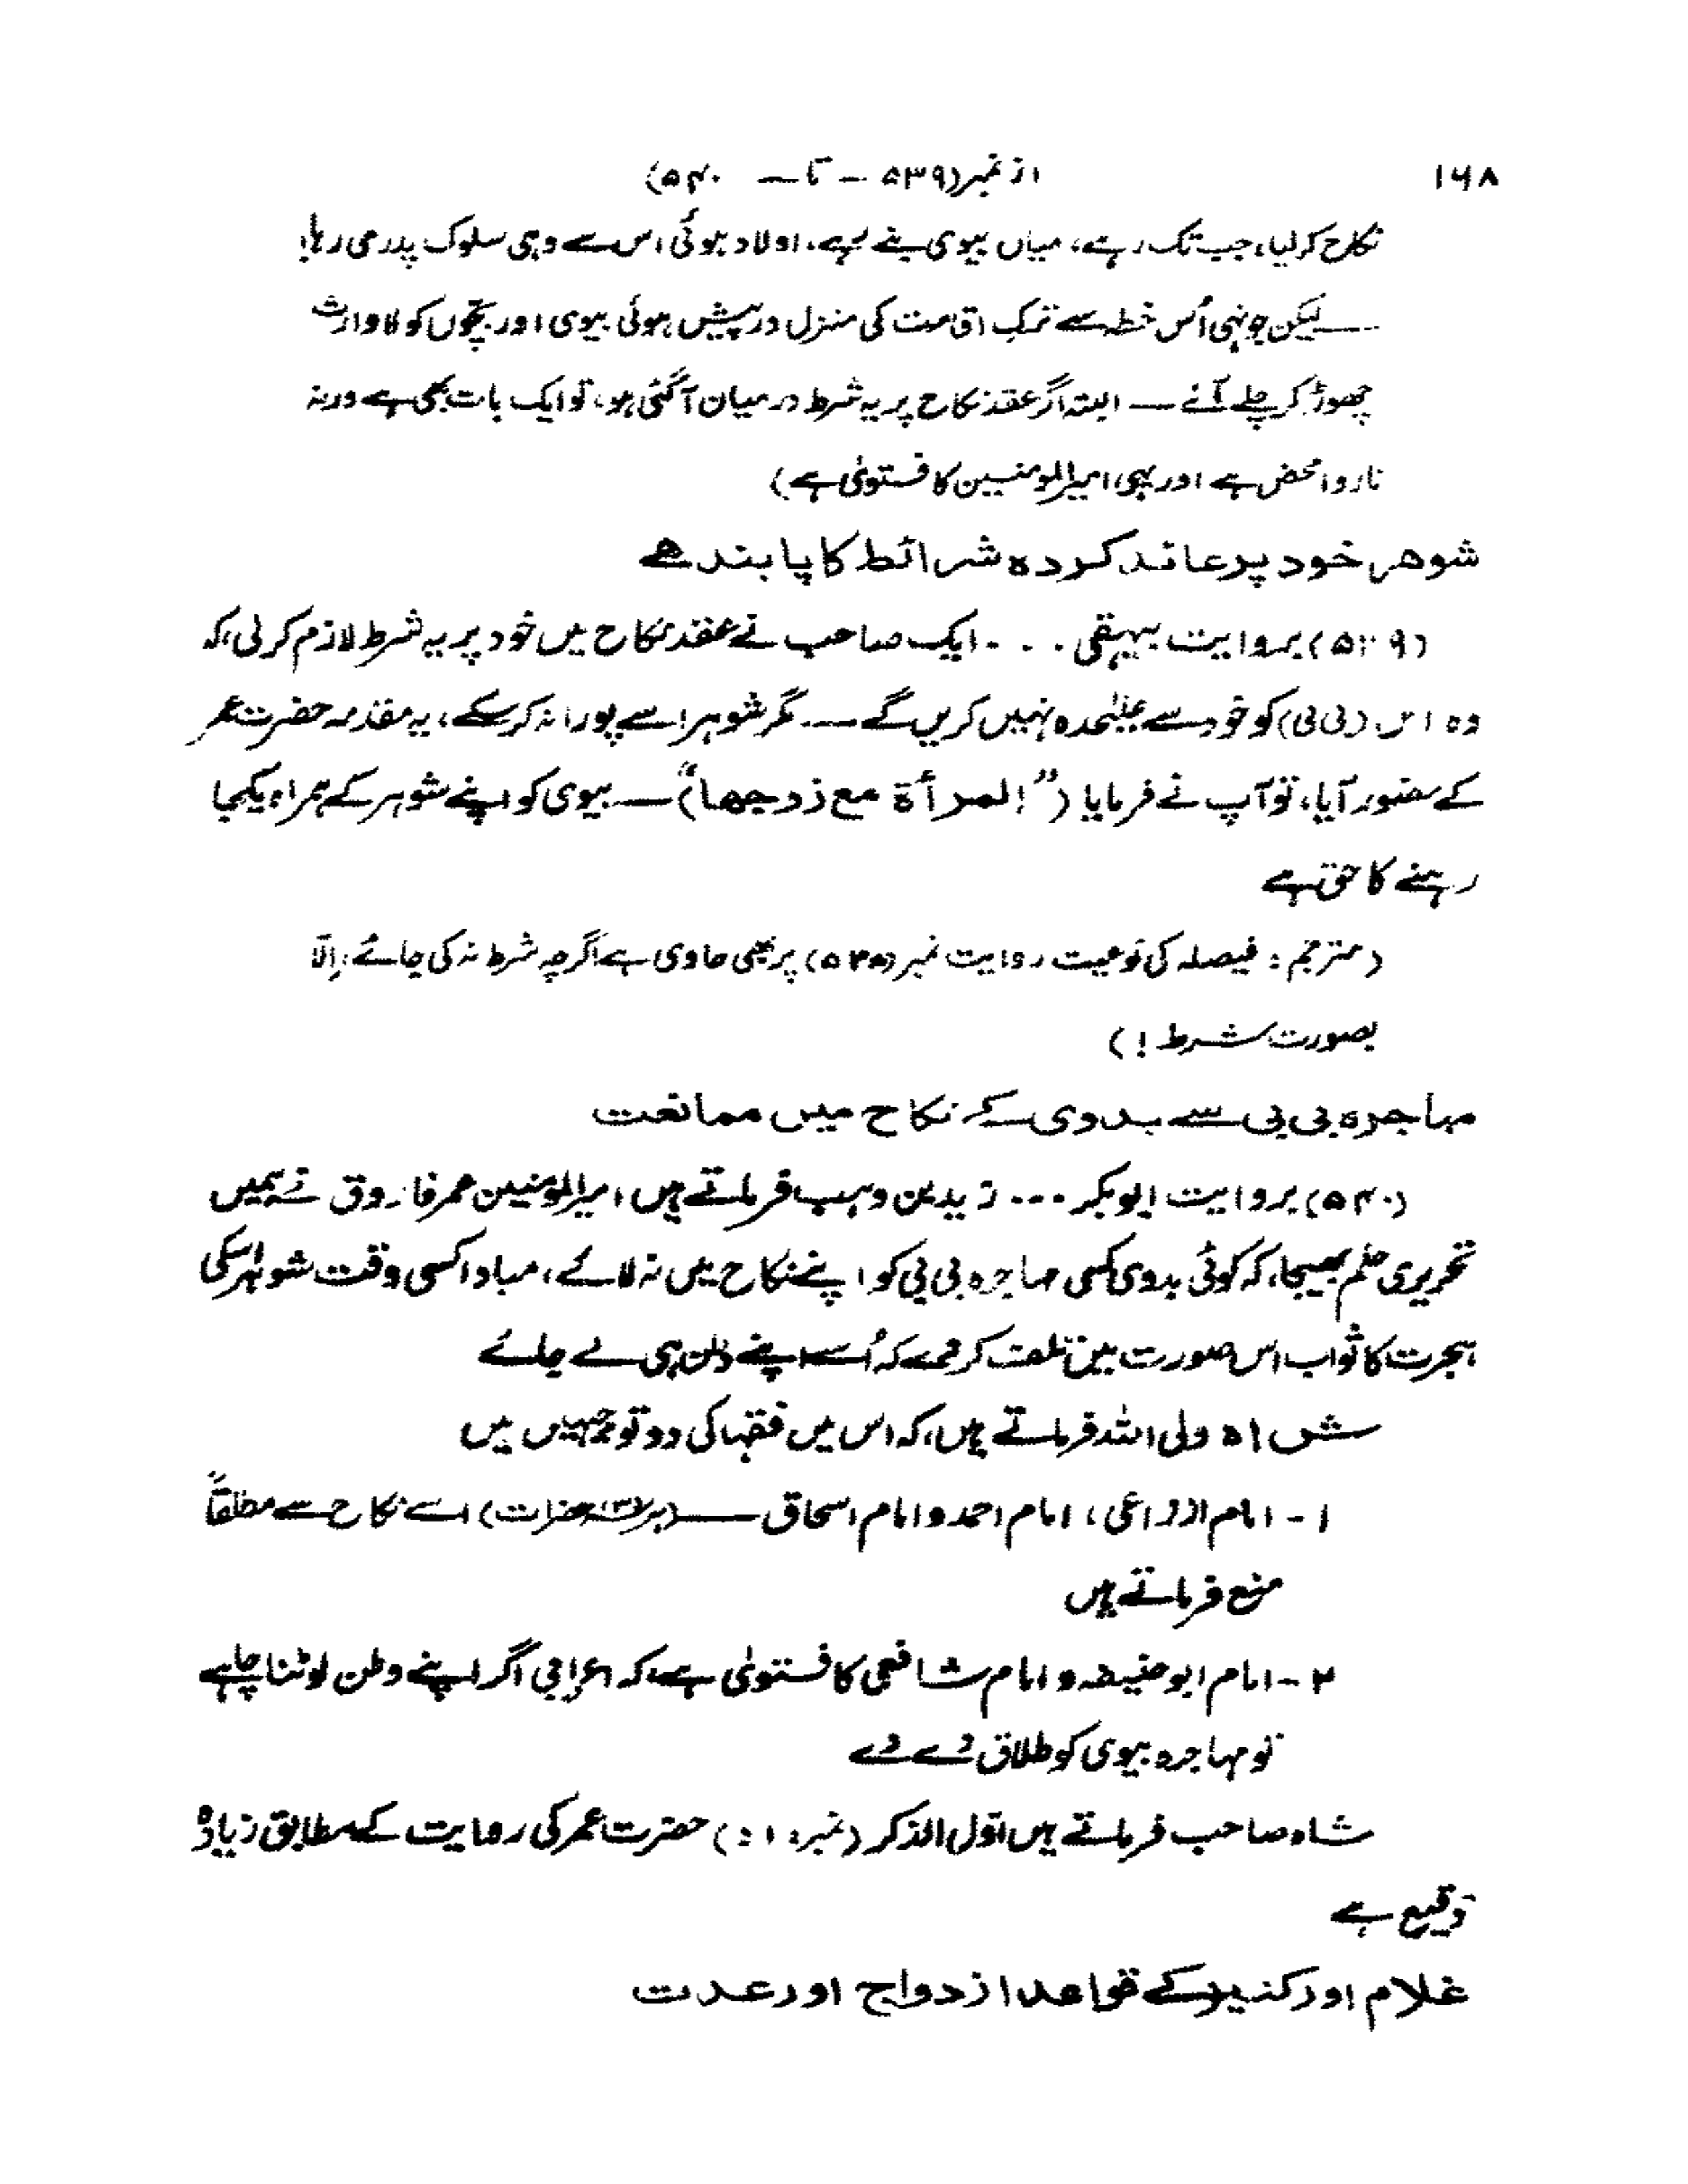 ۱۶۸ از نمبر (۵۳۹ — تا — ۵۴۰)
نکاح کر لیا، جب تک رہے، میاں بیوی بنے رہے، اولاد ہوئی اس سے وہی سلوک پدرمی رہا!
— لیکن جونہی اُس خطہ سے ترکِ اقامت کی منزل درپیش ہوئی بیوی اور بچّوں کو لاوارث
چھوڑ کر چلے آئے — البتہ اگر عقد نکاح پر یہ شرط درمیان آگئی ہو، تو ایک بات بھی ہے ورنہ
ناروا محض ہے اور یہی امیرالمومنین کا فتویٰ ہے)
شوھر خود پر عائد کردہ شرائط کا پابند ھے
(۵۳۹) بروایت بیہقی ۔ ۔ ۔ ایک صاحب نے عقد نکاح میں خود پر یہ شرط لازم کر لی، کہ
وہ اس (بی بی) کو خود سے علیٰحدہ نہیں کریں گے — مگر شوہر اسے پورا نہ کر سکے، یہ مقدمہ حضرت عمر
کے حضور آیا، تو آپ نے فرمایا (”المرأة مع زوجھا“) — بیوی کو اپنے شوہر کے ہمراہ یکجا
رہنے کا حق ہے
(مترجم : فیصلہ کی نوعیت روایت نمبر (۵۳۸) پر بھی حاوی ہے اگرچہ شرط نہ کی جائے، اِلّا
بصورت شرط !)
مہاجرہ بی بی سے بدوی کے نکاح میں ممانعت
(۵۴۰) بروایت ابوبکر ۔۔۔ زید بن وہب فرماتے ہیں، امیرالمومنین عمر فاروق نے ہمیں
تحریری حکم بھیجا، کہ کوئی بدوی کسی مہاجرہ بی بی کو اپنے نکاح میں نہ لائے، مبادا کسی وقت شوہر اسکی
ہجرت کا ثواب اس صورت میں تلف کر دے کہ اُسے اپنے وطن ہی لے جائے
شاہ ولی اللہ فرماتے ہیں، کہ اس میں فقہا کی دو توجہیں ہیں
۱- امام اوزاعی، امام احمد و امام اسحاق — (ہر سہ حضرات) اسے نکاح سے مطلقاً
منع فرماتے ہیں
۲- امام ابو حنیفہ و امام شافعی کا فتویٰ ہے، کہ اعرابی اگر اپنے وطن لوٹنا چاہے
تو مہاجرہ بیوی کو طلاق دے دے
شاہ صاحب فرماتے ہیں اوّل الذکر (نمبر ۱ :) حضرت عمر کی روایت کے مطابق زیادہ
وقیع ہے
غلام اور کنیز کے قواعد ازدواج اور عدت